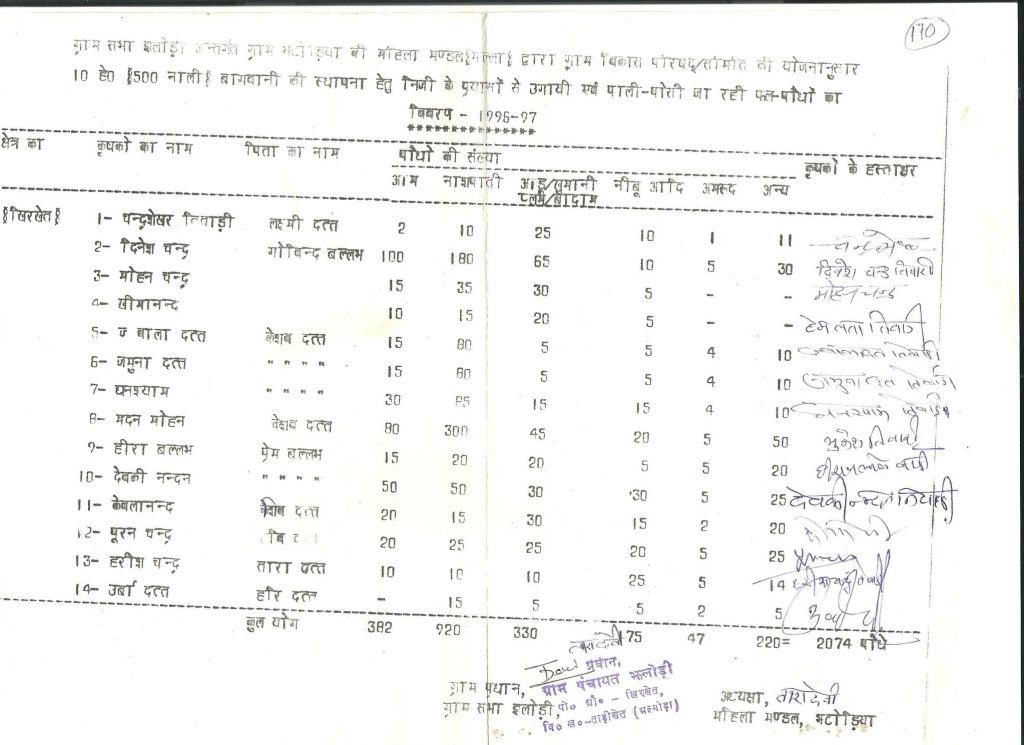 170
ग्राम सभा झलोड़ी अन्तर्गत ग्राम भटोड़िया की महिला मण्डल द्वारा ग्राम विकास परिषद/समिति की योजनानुसार
10 हे0 §500 नाली§ बागवानी की स्थापना हेतु निजी के प्रयासों से उगायी एवं पाली-पोसी जा रही फल-पौधों का
विवरण - 1996-97
क्षेत्र का कृषकों का नाम पिता का नाम पौधों की संख्या कृषकों के हस्ताक्षर
आम नाशपाती आडू/खुमानी नीबू आदि अमरूद अन्य
प्लम/बादाम
§खिरखेत§ 1- चन्द्रशेखर तिवाड़ी लक्ष्मी दत्त 2 10 25 10 1 11
2- दिनेश चन्द्र गोबिन्द बल्लभ 100 180 65 10 5 30 दिनेश चन्द्र तिवारी
3- मोहन चन्द्र 15 35 30 5 - - मोहन चन्द्र
4- खीमानन्द 10 15 20 5 - - हेमलता तिवारी
5- ज वाला दत्त केशब दत्त 15 80 5 5 4 10
6- जमुना दत्त " " " " 15 80 5 5 4 10 जमुना दत्त तिवारी
7- घनश्याम " " " " 30 85 15 15 4 10
8- मदन मोहन केशव दत्त 80 300 45 20 5 50 मुकेश तिवारी
9- हीरा बल्लभ प्रेम बल्लभ 15 20 20 5 5 20
10- देवकी नन्दन " " " " 50 50 30 30 5 25 देवकी नन्दन तिवाड़ी
11- केवलानन्द केशब दत्त 20 15 30 15 2 20
12- पूरन चन्द्र 20 25 25 20 5 25
13- हरीश चन्द्र तारा दत्त 10 10 10 25 5 14
14- उर्बा दत्त हरि दत्त - 15 5 5 2 5
कुल योग 382 920 330 175 47 220= 2074 पौधे
तारा देवी
प्रधान,
ग्राम पंचायत झलोड़ी
पो० औ० - खिरखेत,
वि० ख०-ताड़ीखेत (अल्मोड़ा)
ग्राम प्रधान,
ग्राम सभा झलोड़ी,
अध्यक्षा, तारा देवी
महिला मण्डल, भटोड़िया